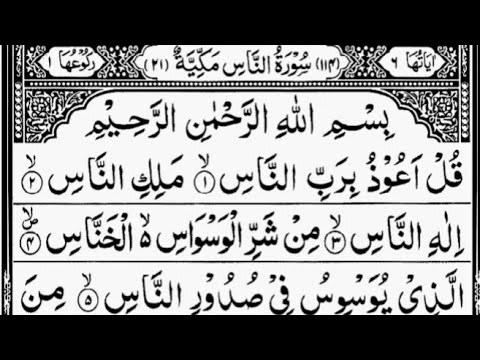 اٰیَاتُهَا ٦ (۱۱۴) سُوْرَةُ النَّاسِ مَكِّيَّةٌ (۲۱) رُكُوْعُهَا ۱
بِسْمِ اللهِ الرَّحْمٰنِ الرَّحِيْمِ
قُلْ اَعُوْذُ بِرَبِّ النَّاسِ ۙ﴿۱﴾ مَلِكِ النَّاسِ ۙ﴿۲﴾
اِلٰهِ النَّاسِ ۙ﴿۳﴾ مِنْ شَرِّ الْوَسْوَاسِ ۙ۬ الْخَنَّاسِ ۪ۙ﴿۴﴾
الَّذِيْ يُوَسْوِسُ فِيْ صُدُوْرِ النَّاسِ ۙ﴿۵﴾ مِنَ